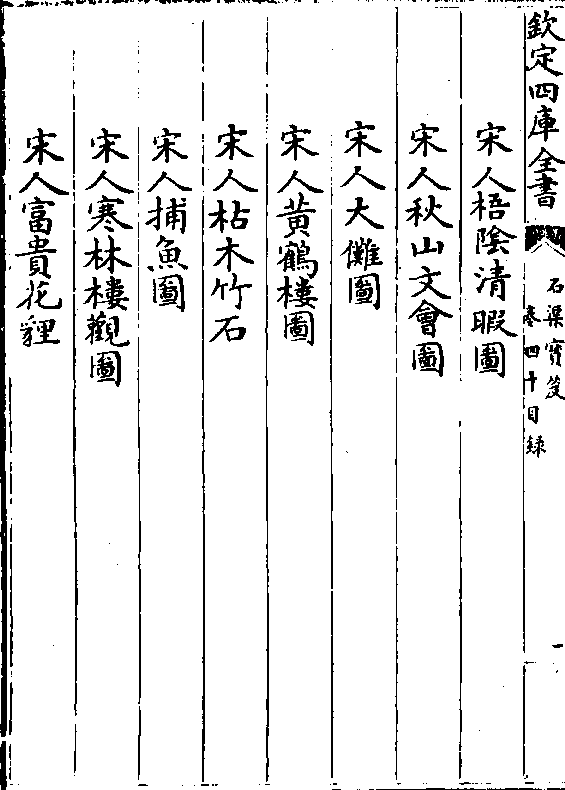 欽定四庫全書
石渠寶笈
卷四十目錄
一
宋人梧陰清暇圖
宋人秋山文會圖
宋人大儺圖
宋人黄鶴樓圖
宋人枯木竹石
宋人捕魚圖
宋人寒林樓觀圖
宋人富貴花貍